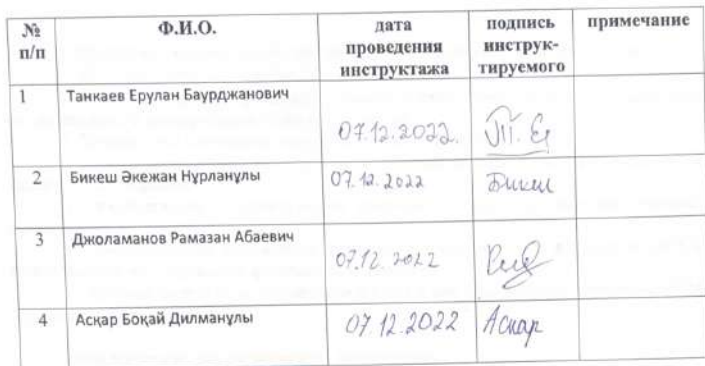 № п/п Ф.И.О. дата проведения инструктажа подпись инструк-тируемого примечание
1 Танкаев Ерулан Баурджанович 07.12.2022. Т. Е
2 Бикеш Әкежан Нұрланұлы 07.12.2022 Бикеш
3 Джоламанов Рамазан Абаевич 07.12.2022
4 Асқар Боқай Дилманұлы 07.12.2022 Асқар